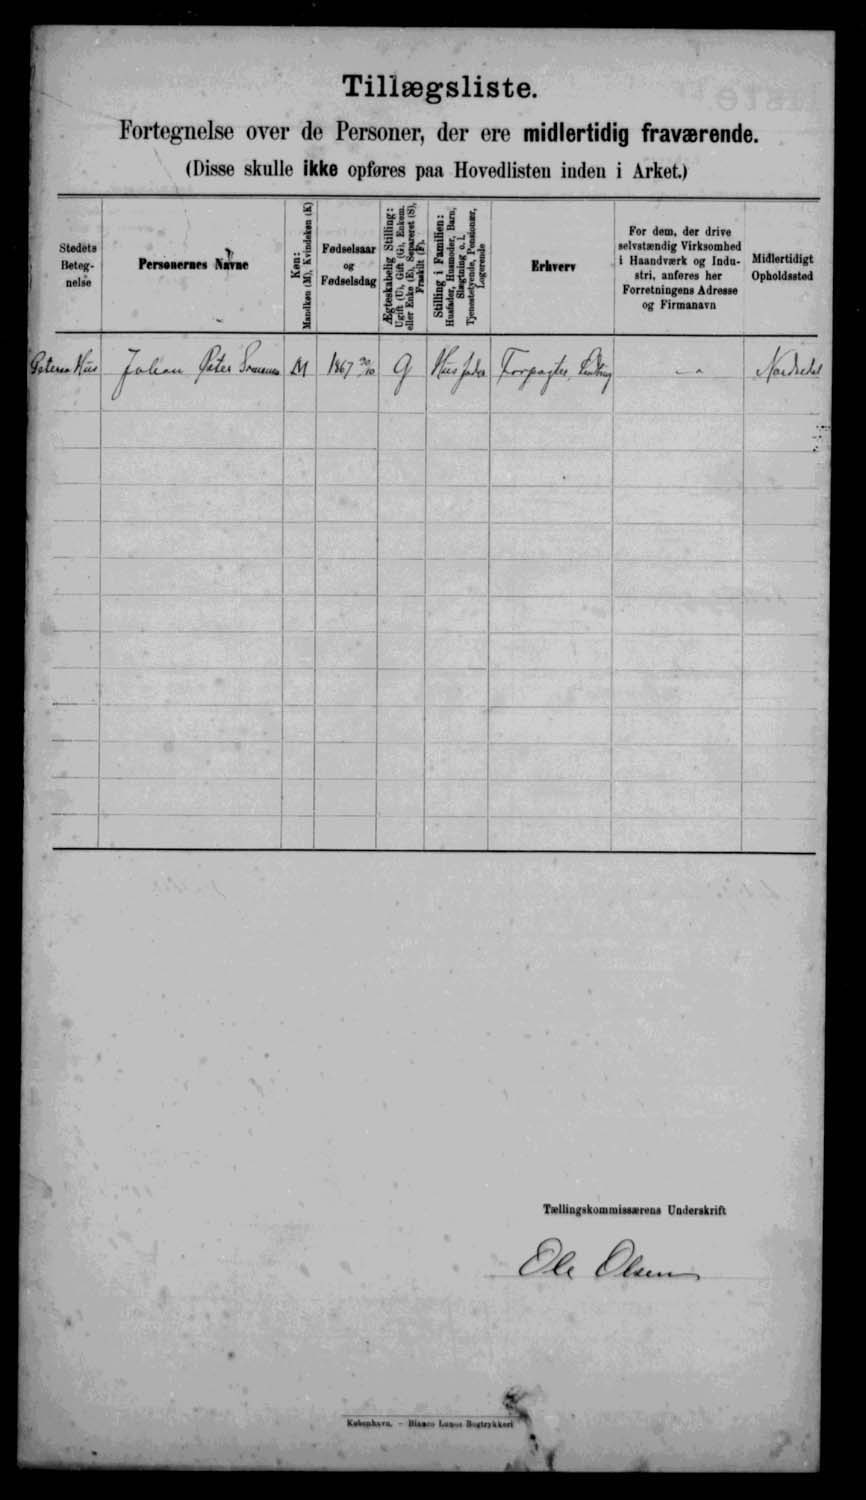 Tillægsliste.
Fortegnelse over de Personer, der ere midlertidig fraværende.
(Disse skulle ikke opføres paa Hovedlisten inden i Arket.)
Stedets
Beteg-
nelse
Personernes Navne
Køn:
Mandkøn (M), Kvindekøn (K)
Fødselsaar
og
Fødselsdag
Ægteskabelig Stilling:
Ugift (U), Gift (G), Enkem.
eller Enke (E), Separeret (S),
Fraskilt (F).
Stilling i Familien:
Husfader, Husmoder, Barn,
Slægtning o. l.
Tjenestetyende, Pensionær,
Logerende
Erhverv
For dem, der drive
selvstændig Virksomhed
i Haandværk og Indu-
stri, anføres her
Forretningens Adresse
og Firmanavn
Midlertidigt
Opholdssted
Hus Johan Peter M 1867 G Husfader Forpagter
Tællingskommissærens Underskrift
Ole Olsen
København. – Bianco Lunos Bogtrykkeri